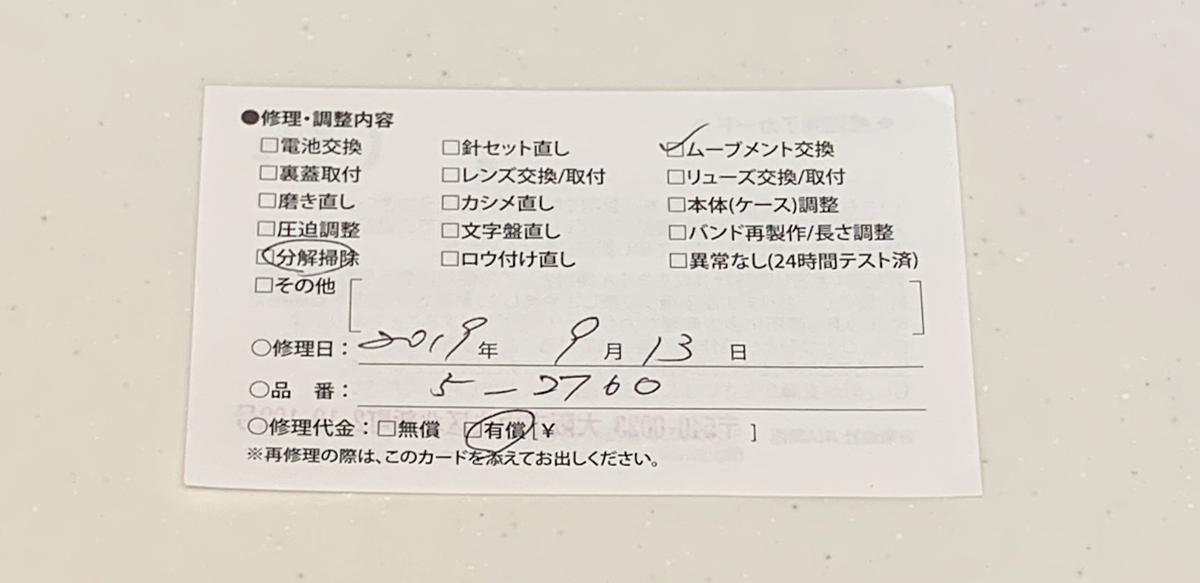 ●修理・調整内容
□電池交換 □針セット直し ☑ムーブメント交換
□裏蓋取付 □レンズ交換/取付 □リューズ交換/取付
□磨き直し □カシメ直し □本体(ケース)調整
□圧迫調整 □文字盤直し □バンド再製作/長さ調整
□分解掃除 □ロウ付け直し □異常なし(24時間テスト済)
□その他[ ]
○修理日：2019年 9月13日
○品 番：5-2760
○修理代金：□無償 □有償[¥ ]
※再修理の際は、このカードを添えてお出しください。